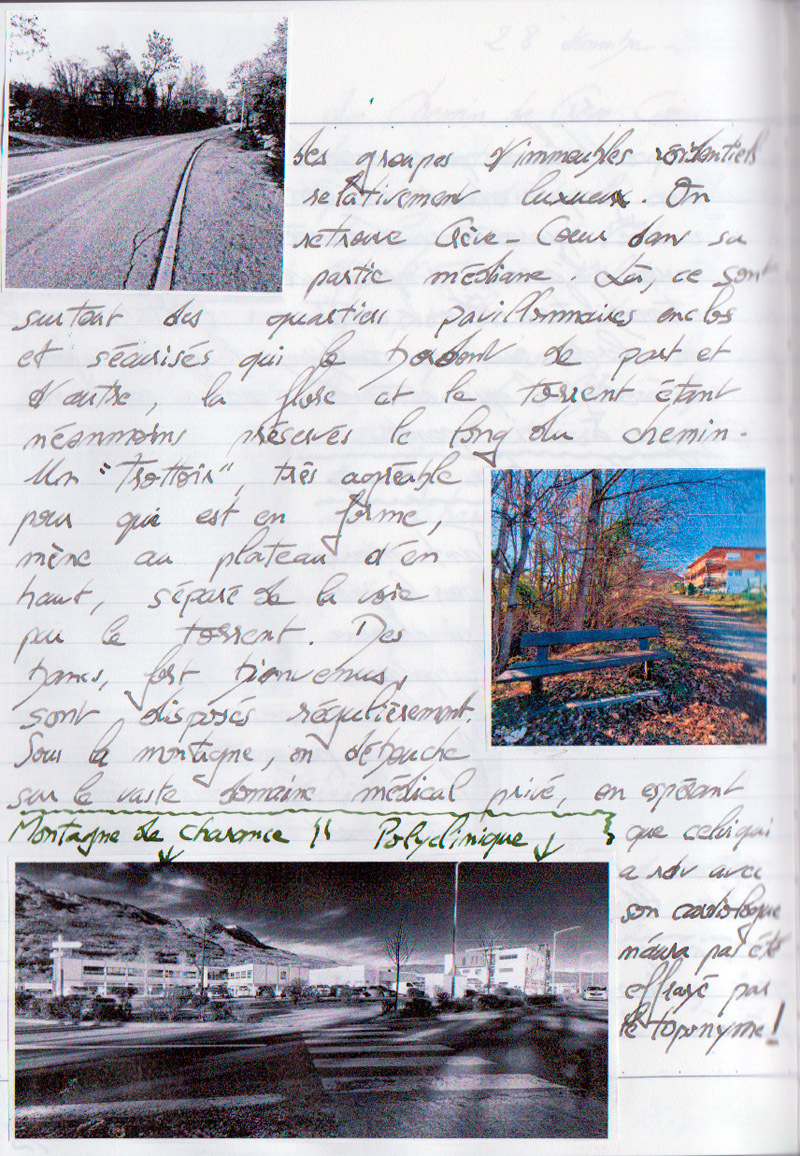 des groupes d'immeubles résidentiels
relativement luxueux. On
retrouve Crève-Coeur dans sa
partie médiane. Là, ce sont
surtout des quartiers pavillonnaires enclos
et sécurisés qui le bordent de part et
d'autre, la flore et le torrent étant
néanmoins préservés le long du chemin.
Un "trottoir", très agréable
pour qui est en forme,
mène au plateau d'en
haut, séparé de la voie
par le torrent. Des
bancs, fort bienvenus,
sont disposés régulièrement.
Sous la montagne, on débouche
sur le vaste domaine médical privé, en espérant
Montagne de charance
Polyclinique
que celui qui
a rdv avec
son cardiologue
n'aura pas été
effrayé par
le toponyme!
28